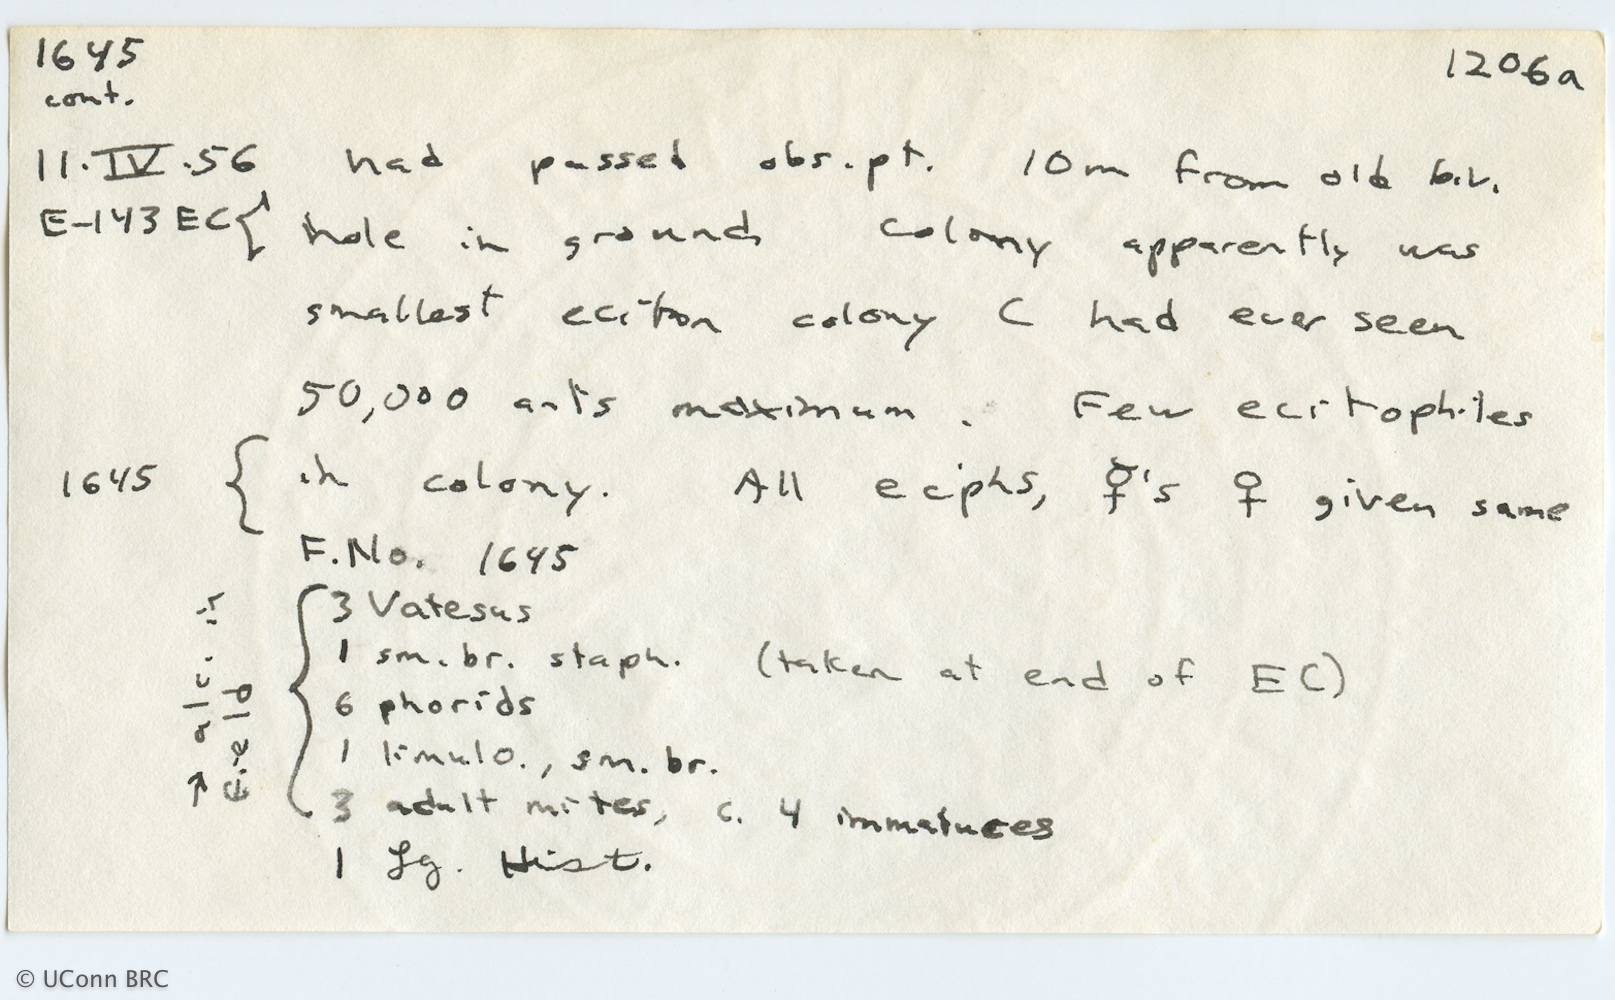 1645 1206a
cont.
11.IV.56 had passed obs.pt. 10m from old biv.
E-143 EC { hole in ground. Colony apparently was
smallest eciton colony C had ever seen
50,000 ants maximum. Few ecitophiles
1645 { in colony. All eciphs, ☿'s ♀ given same
F.No. 1645
3 Vatesus
1 sm. br. staph. (taken at end of EC)
6 phorids
1 limulo., sm. br.
3 adult mites, c. 4 immatures
1 Lg. Hist.
© UConn BRC